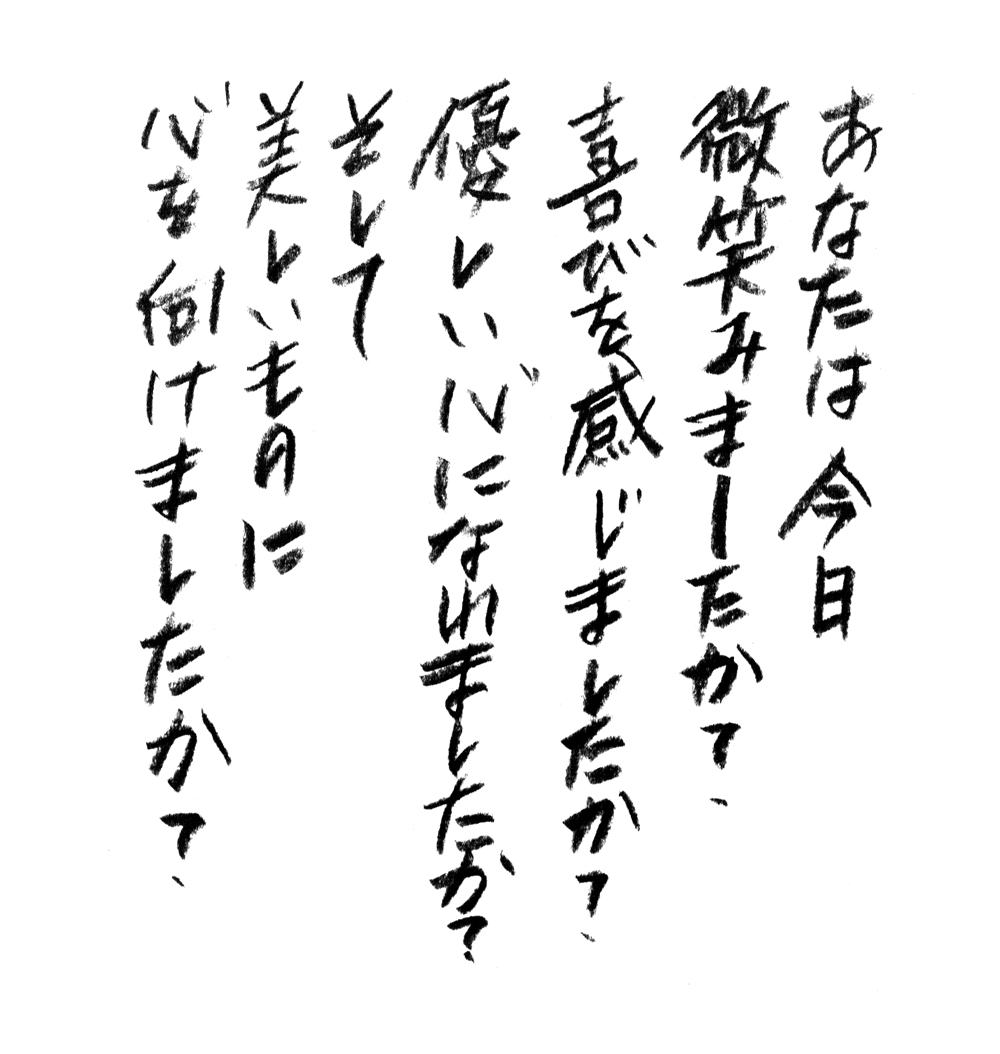 あなたは 今日
微笑みましたか?
喜びを感じましたか?
優しい心になれましたか?
そして
美しいものに
心を向けましたか?